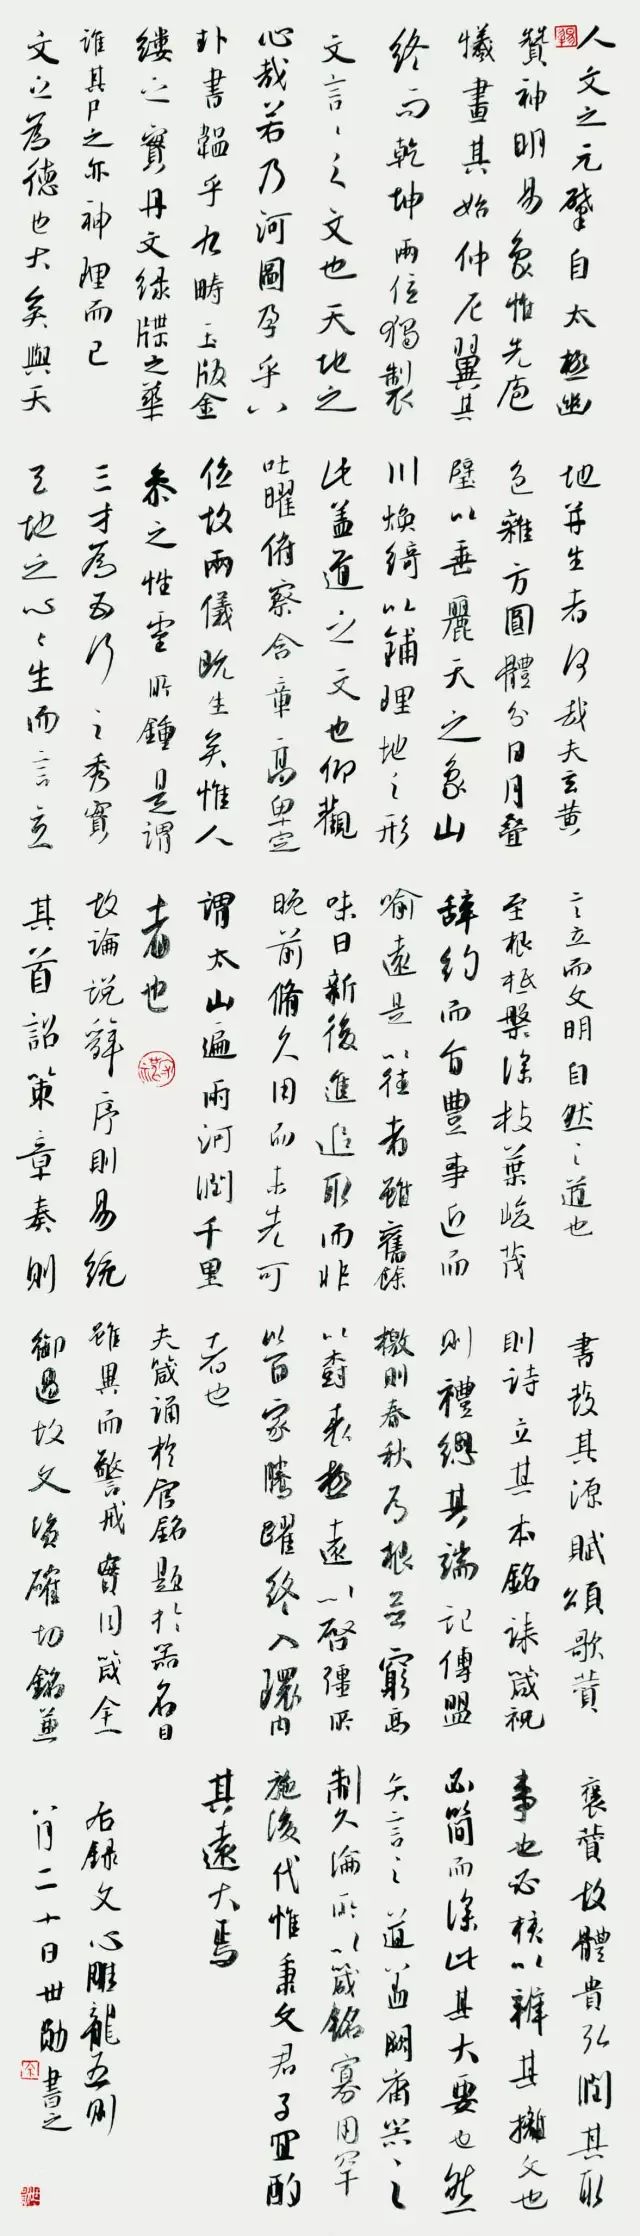 人文之元肇自太極幽
贊神明易象惟先庖
犧畫其始仲尼翼其
終而乾坤兩位獨製
文言〻之文也天地之
心哉若乃河圖孕乎八
卦書韞乎九疇玉版金
鏤之實丹文綠牒之華
誰其尸之亦神理而已
文之為德也大矣與天
地并生者何哉夫玄黃
色雜方圓體分日月疊
璧以垂麗天之象山
川煥綺以鋪理地之形
此蓋道之文也仰觀
吐曜俯察含章高卑定
位故兩儀既生矣惟人
參之性靈所鍾是謂
三才為五行之秀實
天地之心〻生而言立
言立而文明自然之道也
至根柢槃深枝葉峻茂
辭約而旨豐事近而
喻遠是以往者雖舊餘
味日新後進追取而非
晚前脩久用而未先可
謂太山遍雨河潤千里
者也
故論說辭序則易統
其首詔策章奏則
書發其源賦頌歌贊
則詩立其本銘誄箴祝
則禮總其端記傳盟
檄則春秋為根並窮高
以樹表極遠以啓疆所
以百家騰躍終入環內
者也
夫箴誦於官銘題於器名目
雖異而警戒實同箴全
御過故文資確切銘兼
褒贊故體貴弘潤其取
事也必核以辨其摛文也
必簡而深此其大要也然
矢言之道蓋闕庸器之
制久淪所以箴銘寡用罕
施後代惟秉文君子宜酌
其遠大焉
右錄文心雕龍五則
八月二十日世勛書之